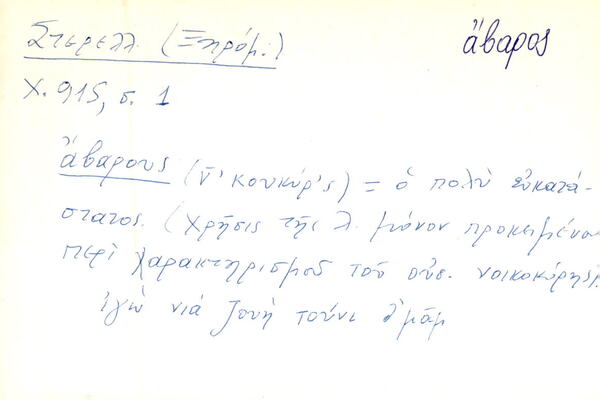 Στερελλ. (Ξηρόμ.)
ἄβαρος
Χ. 915, σ. 1
ἄβαρους (ν'κουκύρ'ς) = ὁ πολὺ εὐκατά-
στατος. (χρῆσις τῆς λ. μόνον προκειμένου
περὶ χαρακτηρισμοῦ τοῦ οὐσ. νοικοκύρης).
ἰγὼ νιὰ ζουὴ τοὺνι